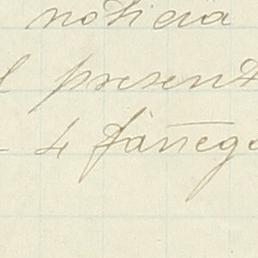 noticia
l present
- 4 fanega